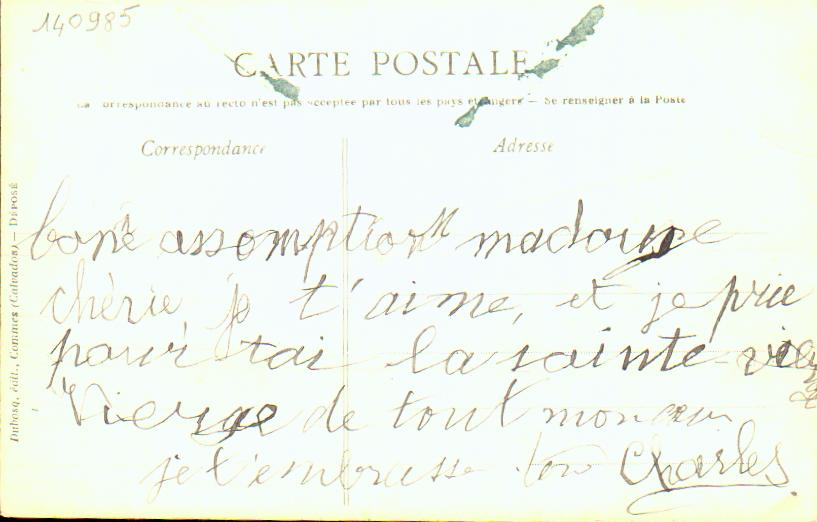 140985
CARTE POSTALE
La Correspondance au recto n'est pas acceptée par tous les pays étrangers — Se renseigner à la Poste
Correspondance
Adresse
Dubosq, édit., Commes (Calvados) — DÉPOSÉ
bone assomption madoune
chérie je t'aime, et je prie
pour tai la sainte vierge
Vierge de tout mon cœur
je t'embrasse ton Charles